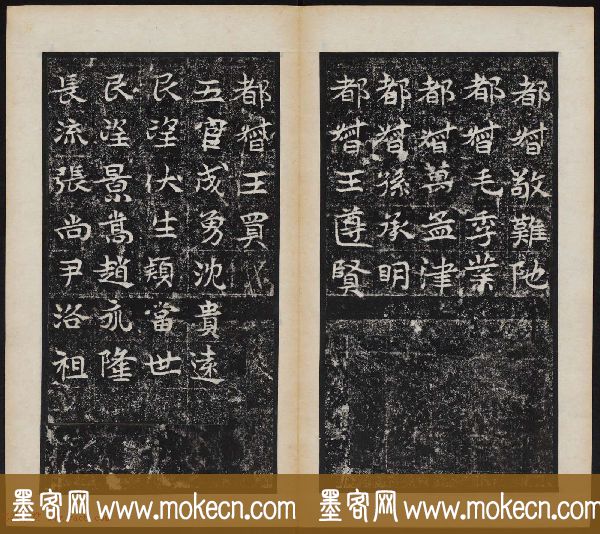 都督敬難陁
都督毛季業
都督萬孟津
都督孫承明
都督王遵賢
都督王買
五官成勇沈貴遠
民望伏生穎當世
民望景嵩趙永隆
長流張尚尹洛祖
墨客网 www.mokecn.com 墨客网 www.mokecn.com